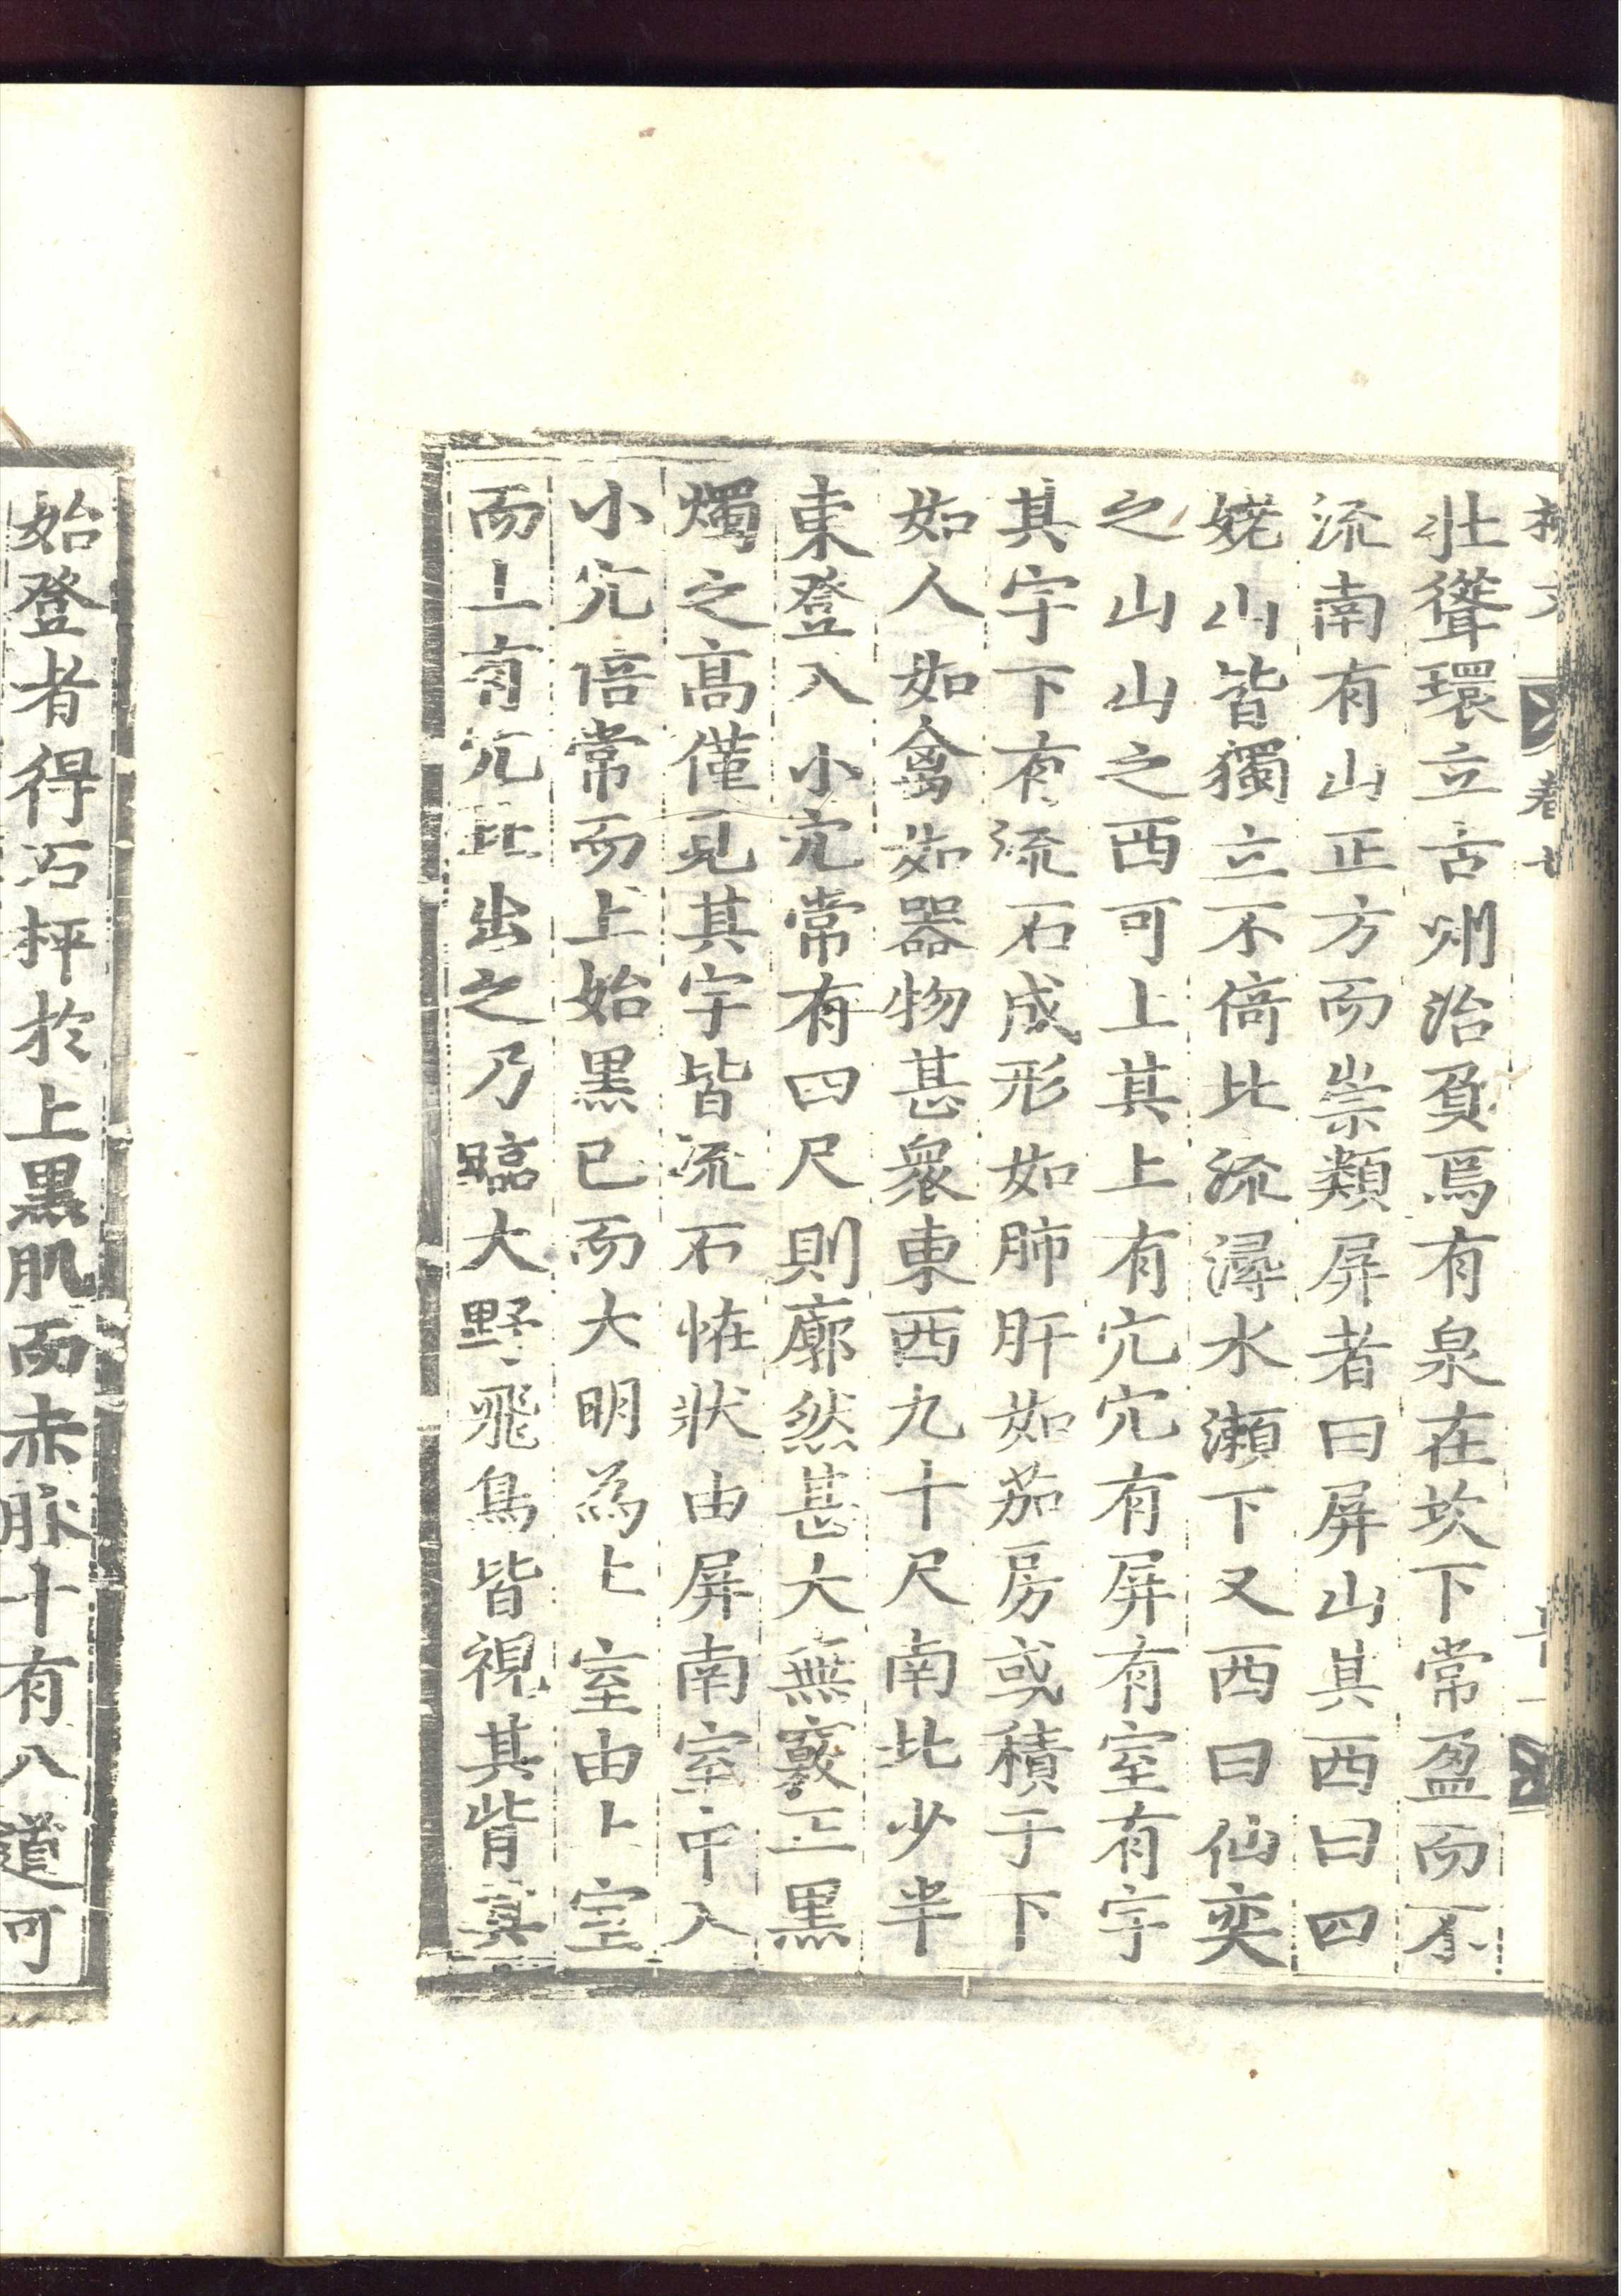 壮聳環立古州治負焉有泉在坎下常盈而不
流南有山正方而崇類屏者曰屏山其西曰四
姥山皆獨立不倚北流潯水瀬下又西曰仙奕
之山山之西可上其上有穴穴有屏有室有宇
其宇下有流石成形如肺肝如茄房或積于下
如人如禽如器物甚衆東西九十尺南北少半
東登入小穴常有四尺則廓然甚大無竅正黒
燭之高僅見其宇皆流石恠狀由屏南室中入
小穴倍常而上始黒已而大明為上室由上室
而上有穴北出之乃臨大野飛鳥皆視其背其
始登者得石枰於上黒肌而赤脉十有八道可